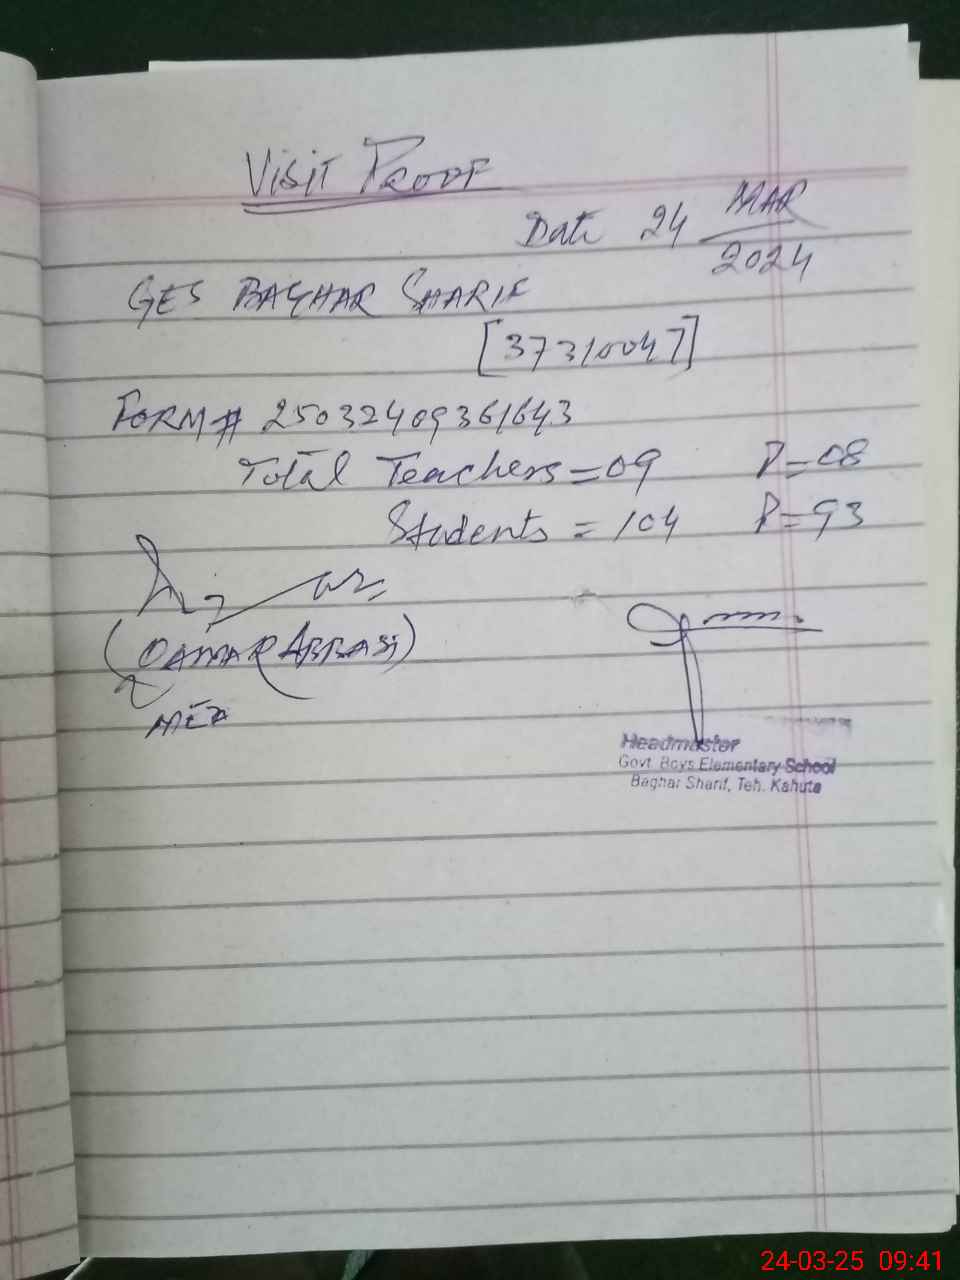 Visit Proof
Date 24 MAR
2024
GES BAGHAR SHARIF
[37310047]
FORM # 25032409361643
Total Teachers = 09 P = 08
Students = 104 P = 93
(QAMAR ABBASI)
MEA
Headmaster
Govt. Boys Elementary School
Baghar Sharif, Teh. Kahuta
24-03-25 09:41